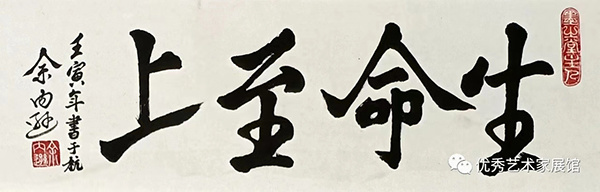 生命至上
壬寅年書于杭
余向遜
優秀艺术家展馆